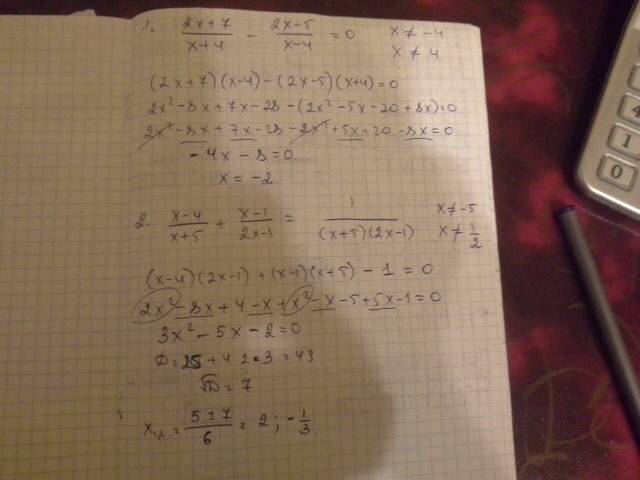 1. (2x+7)/(x+4) - (2x-5)/(x-4) = 0   x ≠ -4
x ≠ 4
(2x+7)(x-4)-(2x-5)(x+4)=0
2x²-8x+7x-28-(2x²-5x-20+8x)=0
2x²-8x+7x-28-2x²+5x+20-8x=0
-4x-8=0
x=-2
2. (x-4)/(x+5) + (x-1)/(2x-1) = 1/((x+5)(2x-1))   x ≠ -5
x ≠ 1/2
(x-4)(2x-1)+(x-1)(x+5)-1=0
2x²-8x+4-x+x²-x-5+5x-1=0
3x²-5x-2=0
D=25+4·2·3=49
√D=7
x₁,₂ = (5±7)/6 = 2; -1/3
4
1
0